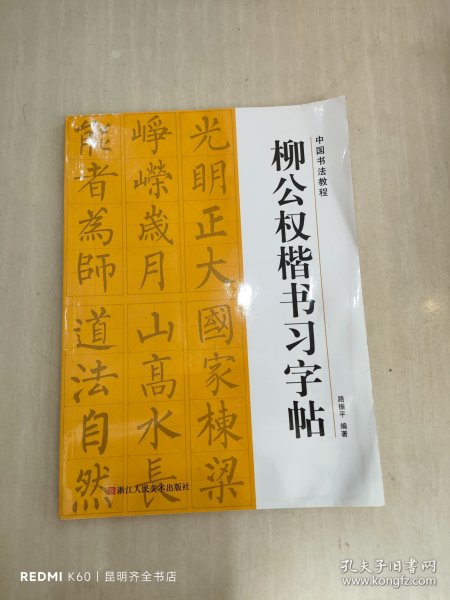 中国书法教程
柳公权楷书习字帖
路振平 编著
光明正大
國家棟梁
崢嶸歲月
山高水長
能者為師
道法自然
浙江人民美术出版社
REDMI K60 | 昆明齐全书店
孔夫子旧书网
www.kongfz.com